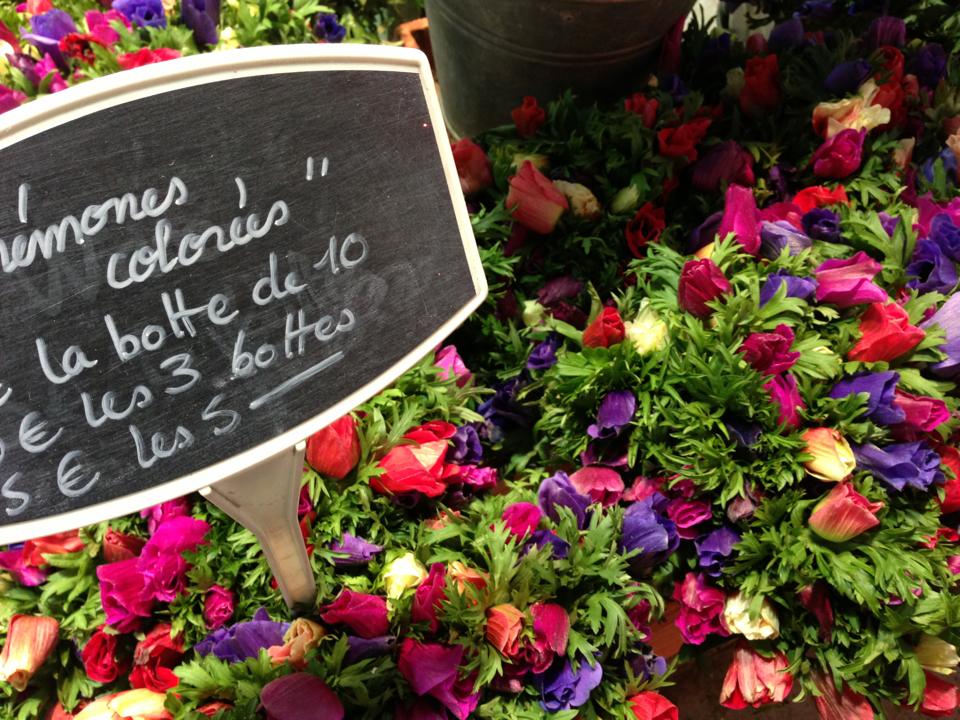 némones
colorées "
€ la botte de 10
5 € les 3 bottes
5 € les 5 —